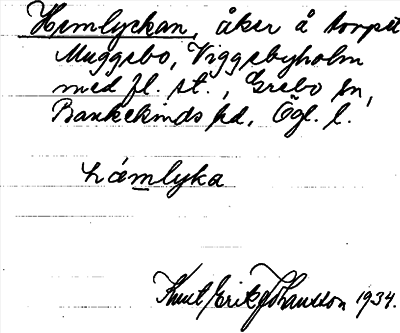 Hemlyckan, åker å torpet
Muggebo, Viggebyholm
med fl. st., Grebo sn,
Bankekinds hd, Ögl. l.
hé̀mlyka
Knut Erik Johansson 1934.